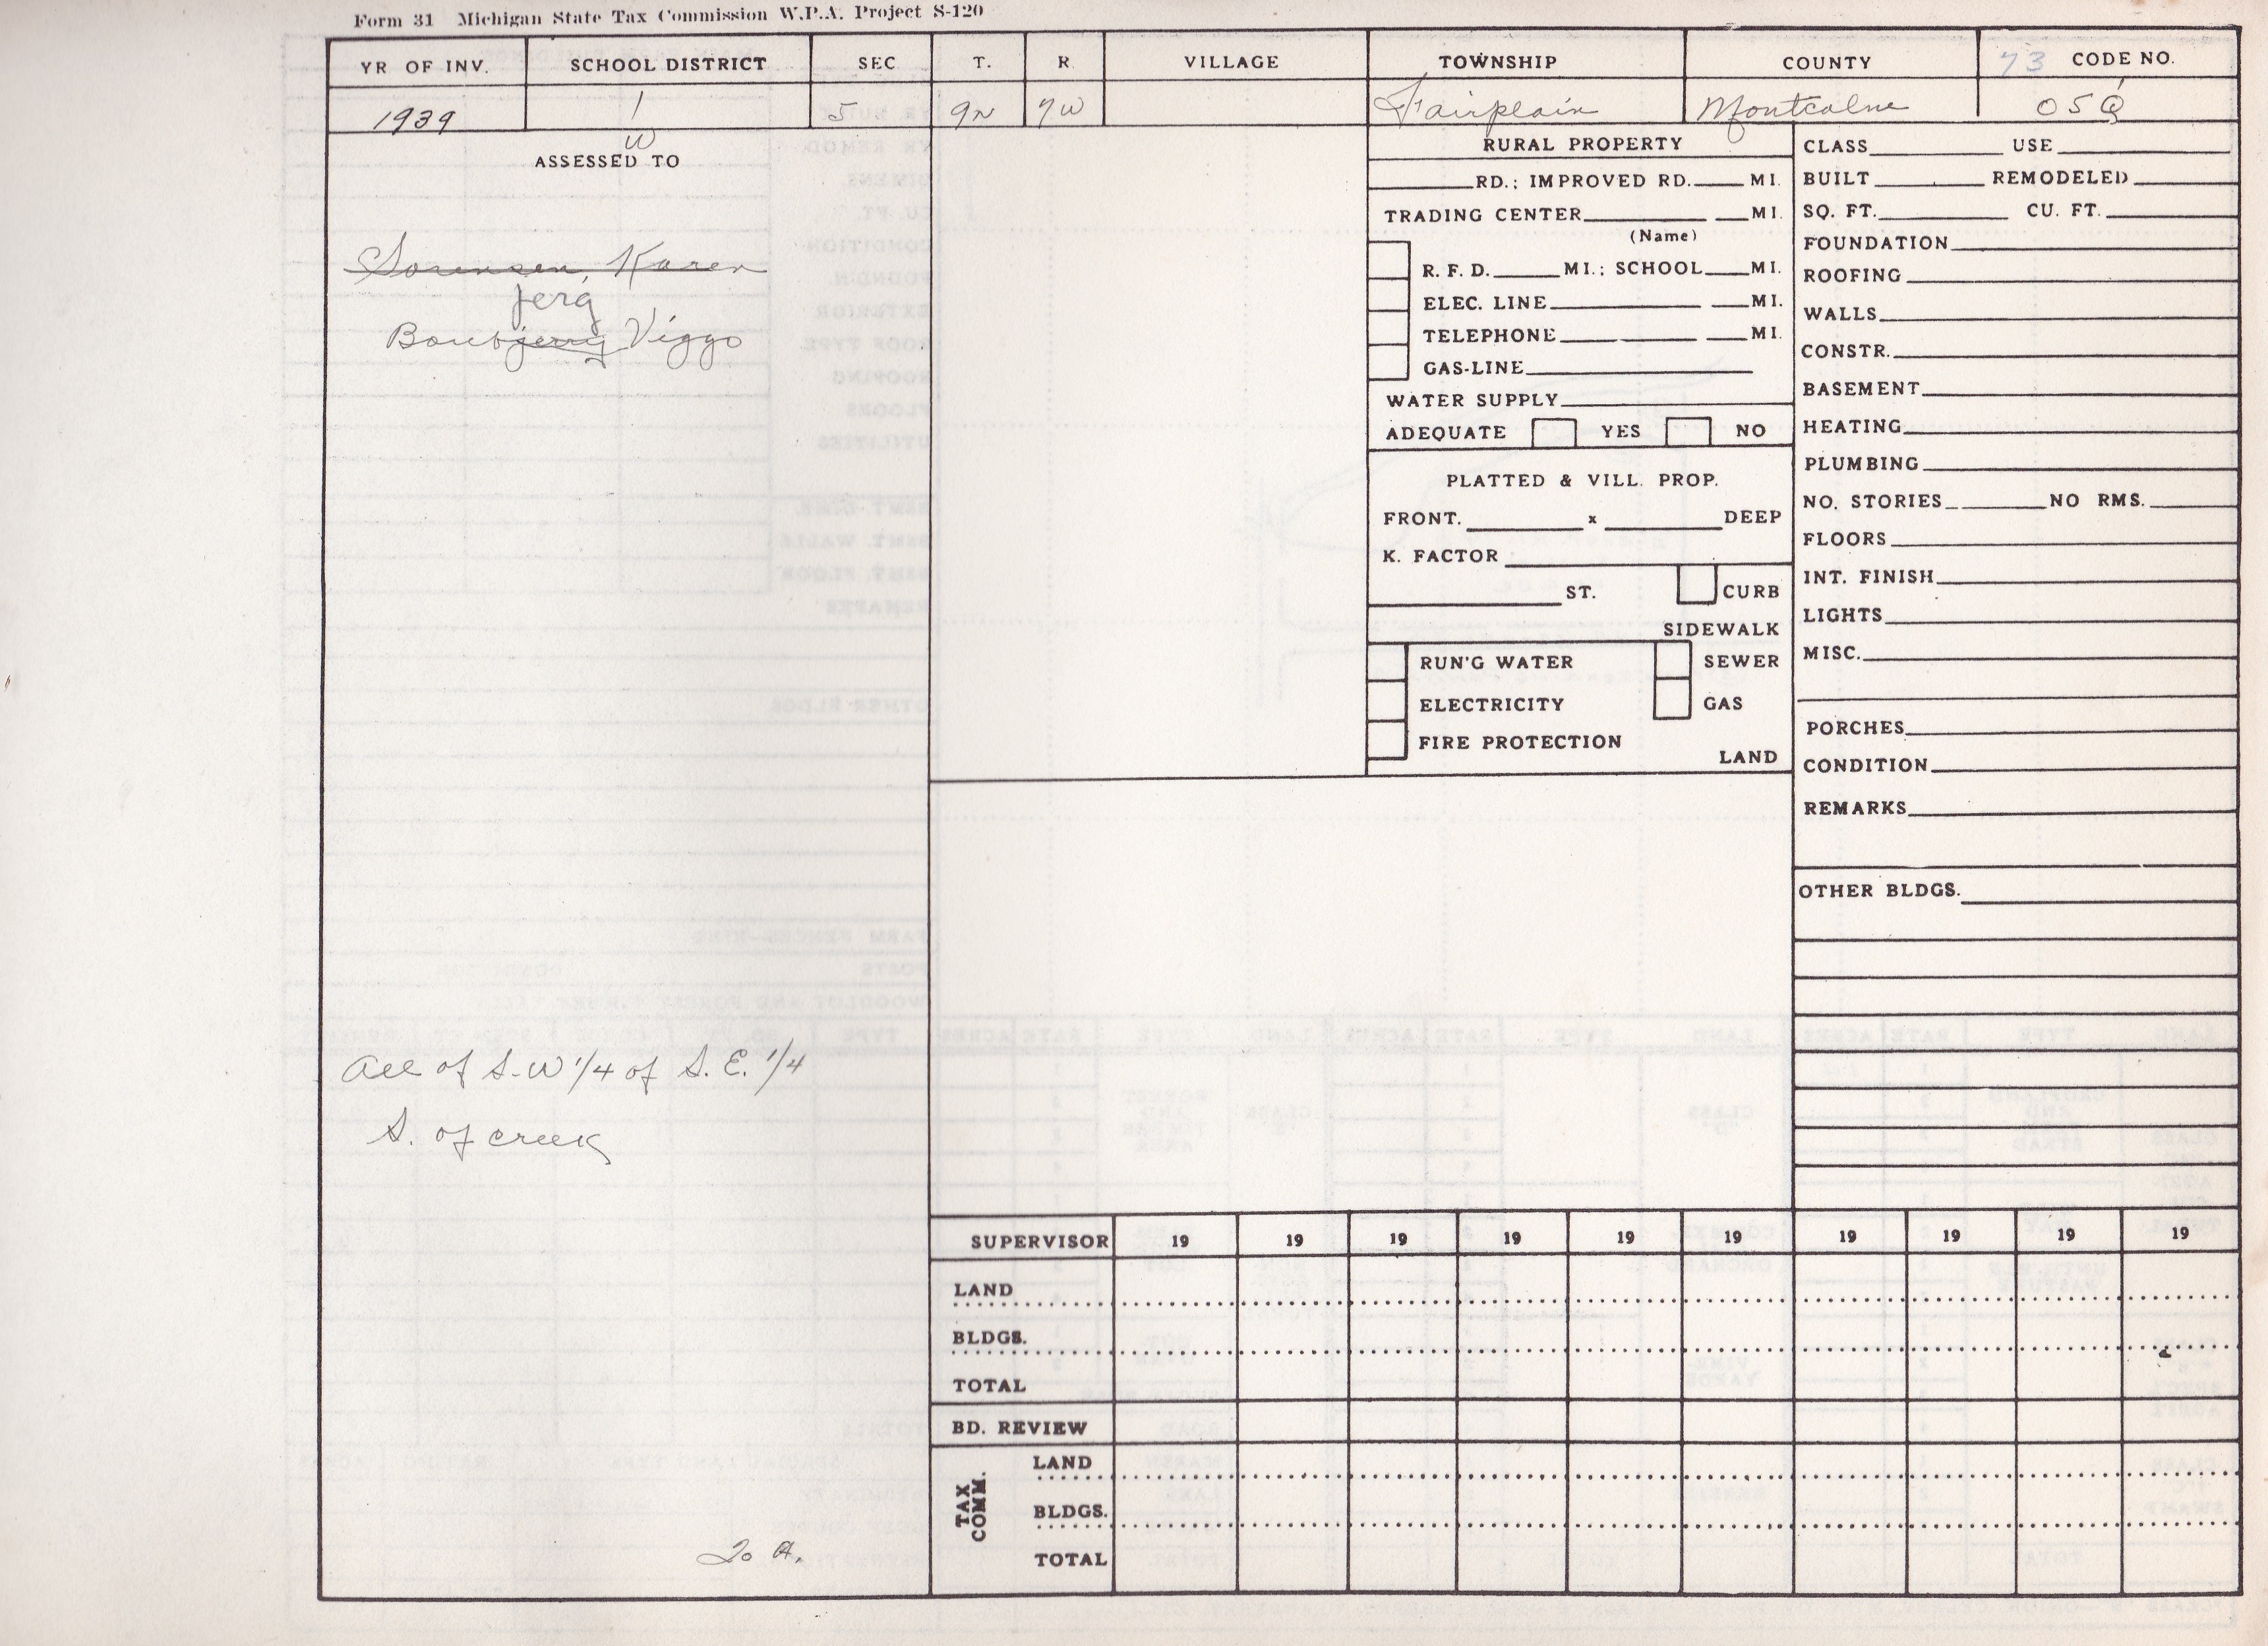 Form 31 Michigan State Tax Commission W.P.A. Project S-120
YR OF INV. SCHOOL DISTRICT SEC T. R. VILLAGE TOWNSHIP COUNTY 73 CODE NO.
1939 1 5 9N 7W Fairplain Montcalm 05Q
W
ASSESSED TO
Sorensen, Karen
jerg
Bonbjerrg Viggo
All of S.W 1/4 of S.E. 1/4
S. of creek
20 A.
RURAL PROPERTY
RD.; IMPROVED RD. MI.
TRADING CENTER MI.
(Name)
R. F. D. MI.; SCHOOL MI.
ELEC. LINE MI.
TELEPHONE MI.
GAS-LINE
WATER SUPPLY
ADEQUATE YES NO
PLATTED & VILL. PROP.
FRONT. x DEEP
K. FACTOR
ST. CURB
SIDEWALK
RUN'G WATER SEWER
ELECTRICITY GAS
FIRE PROTECTION
LAND
CLASS USE
BUILT REMODELED
SQ. FT. CU. FT.
FOUNDATION
ROOFING
WALLS
CONSTR.
BASEMENT
HEATING
PLUMBING
NO. STORIES NO RMS.
FLOORS
INT. FINISH
LIGHTS
MISC.
PORCHES
CONDITION
REMARKS
OTHER BLDGS.
SUPERVISOR 19 19 19 19 19 19 19 19 19 19
LAND
BLDGS.
TOTAL
BD. REVIEW
TAX COMM.
LAND
BLDGS.
TOTAL